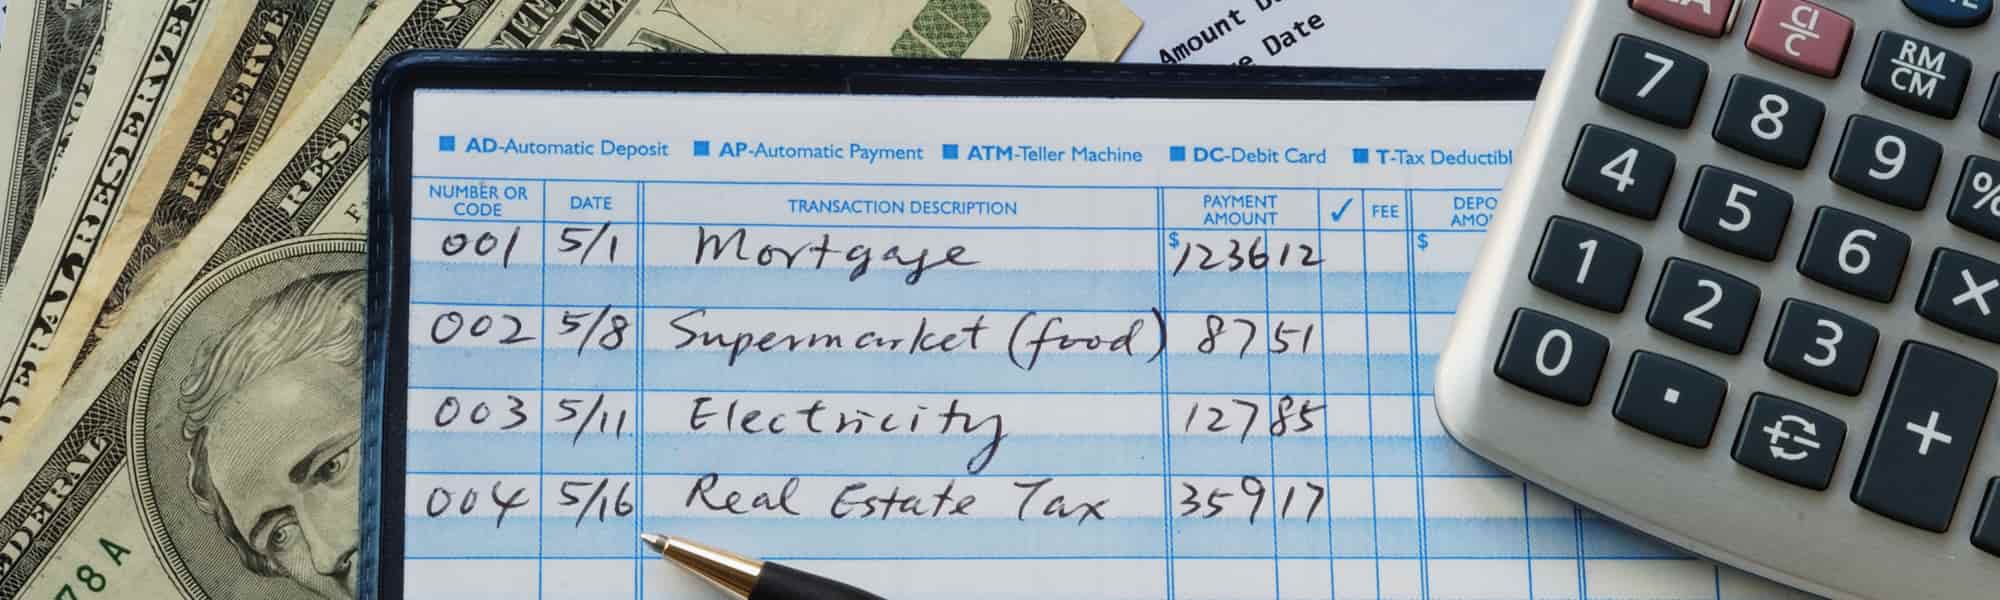 NOTE
FEDERAL RESERVE
RESERVE
RESE
UNITE
AME
FEDERAL
78 A
Amount D
e Date
AD-Automatic Deposit AP-Automatic Payment ATM-Teller Machine DC-Debit Card T-Tax Deductibl
NUMBER OR CODE DATE TRANSACTION DESCRIPTION PAYMENT AMOUNT ✓ FEE DEPO AMO
001 5/1 Mortgage $1236 12 $
002 5/8 Supermarket (food) 87 51
003 5/11 Electricity 127 85
004 5/16 Real Estate Tax 359 17
CA CI/C
7 8 9 RM/CM
4 5 6 %
1 2 3 ×
0 . +